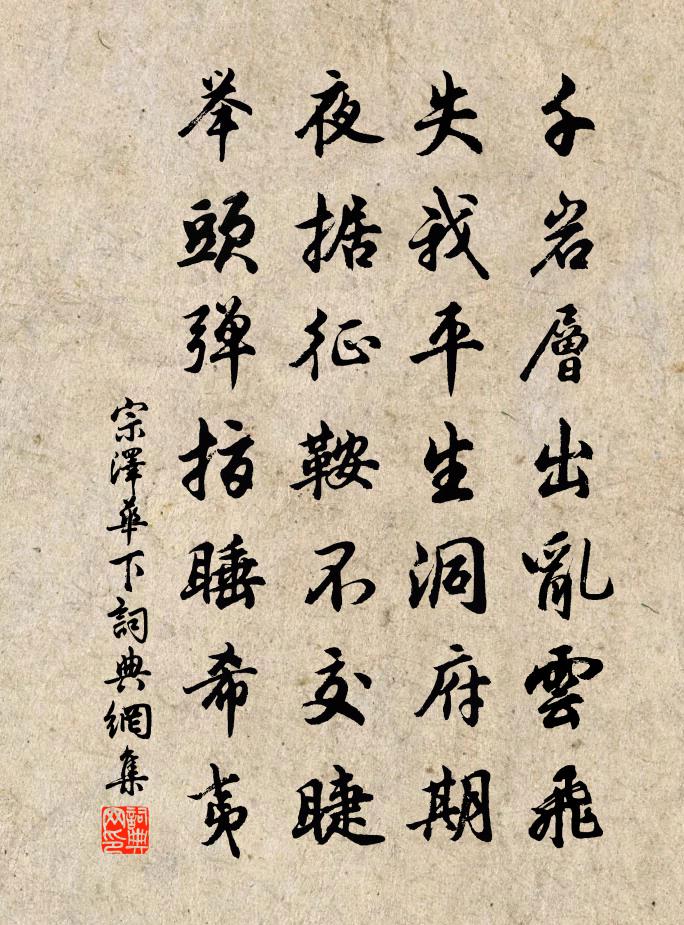 千岩層出亂雲飛
失我平生洞府期
夜据征鞍不交睫
举頭弹指睡希夷
宗澤華下詞典網集
詞典网印